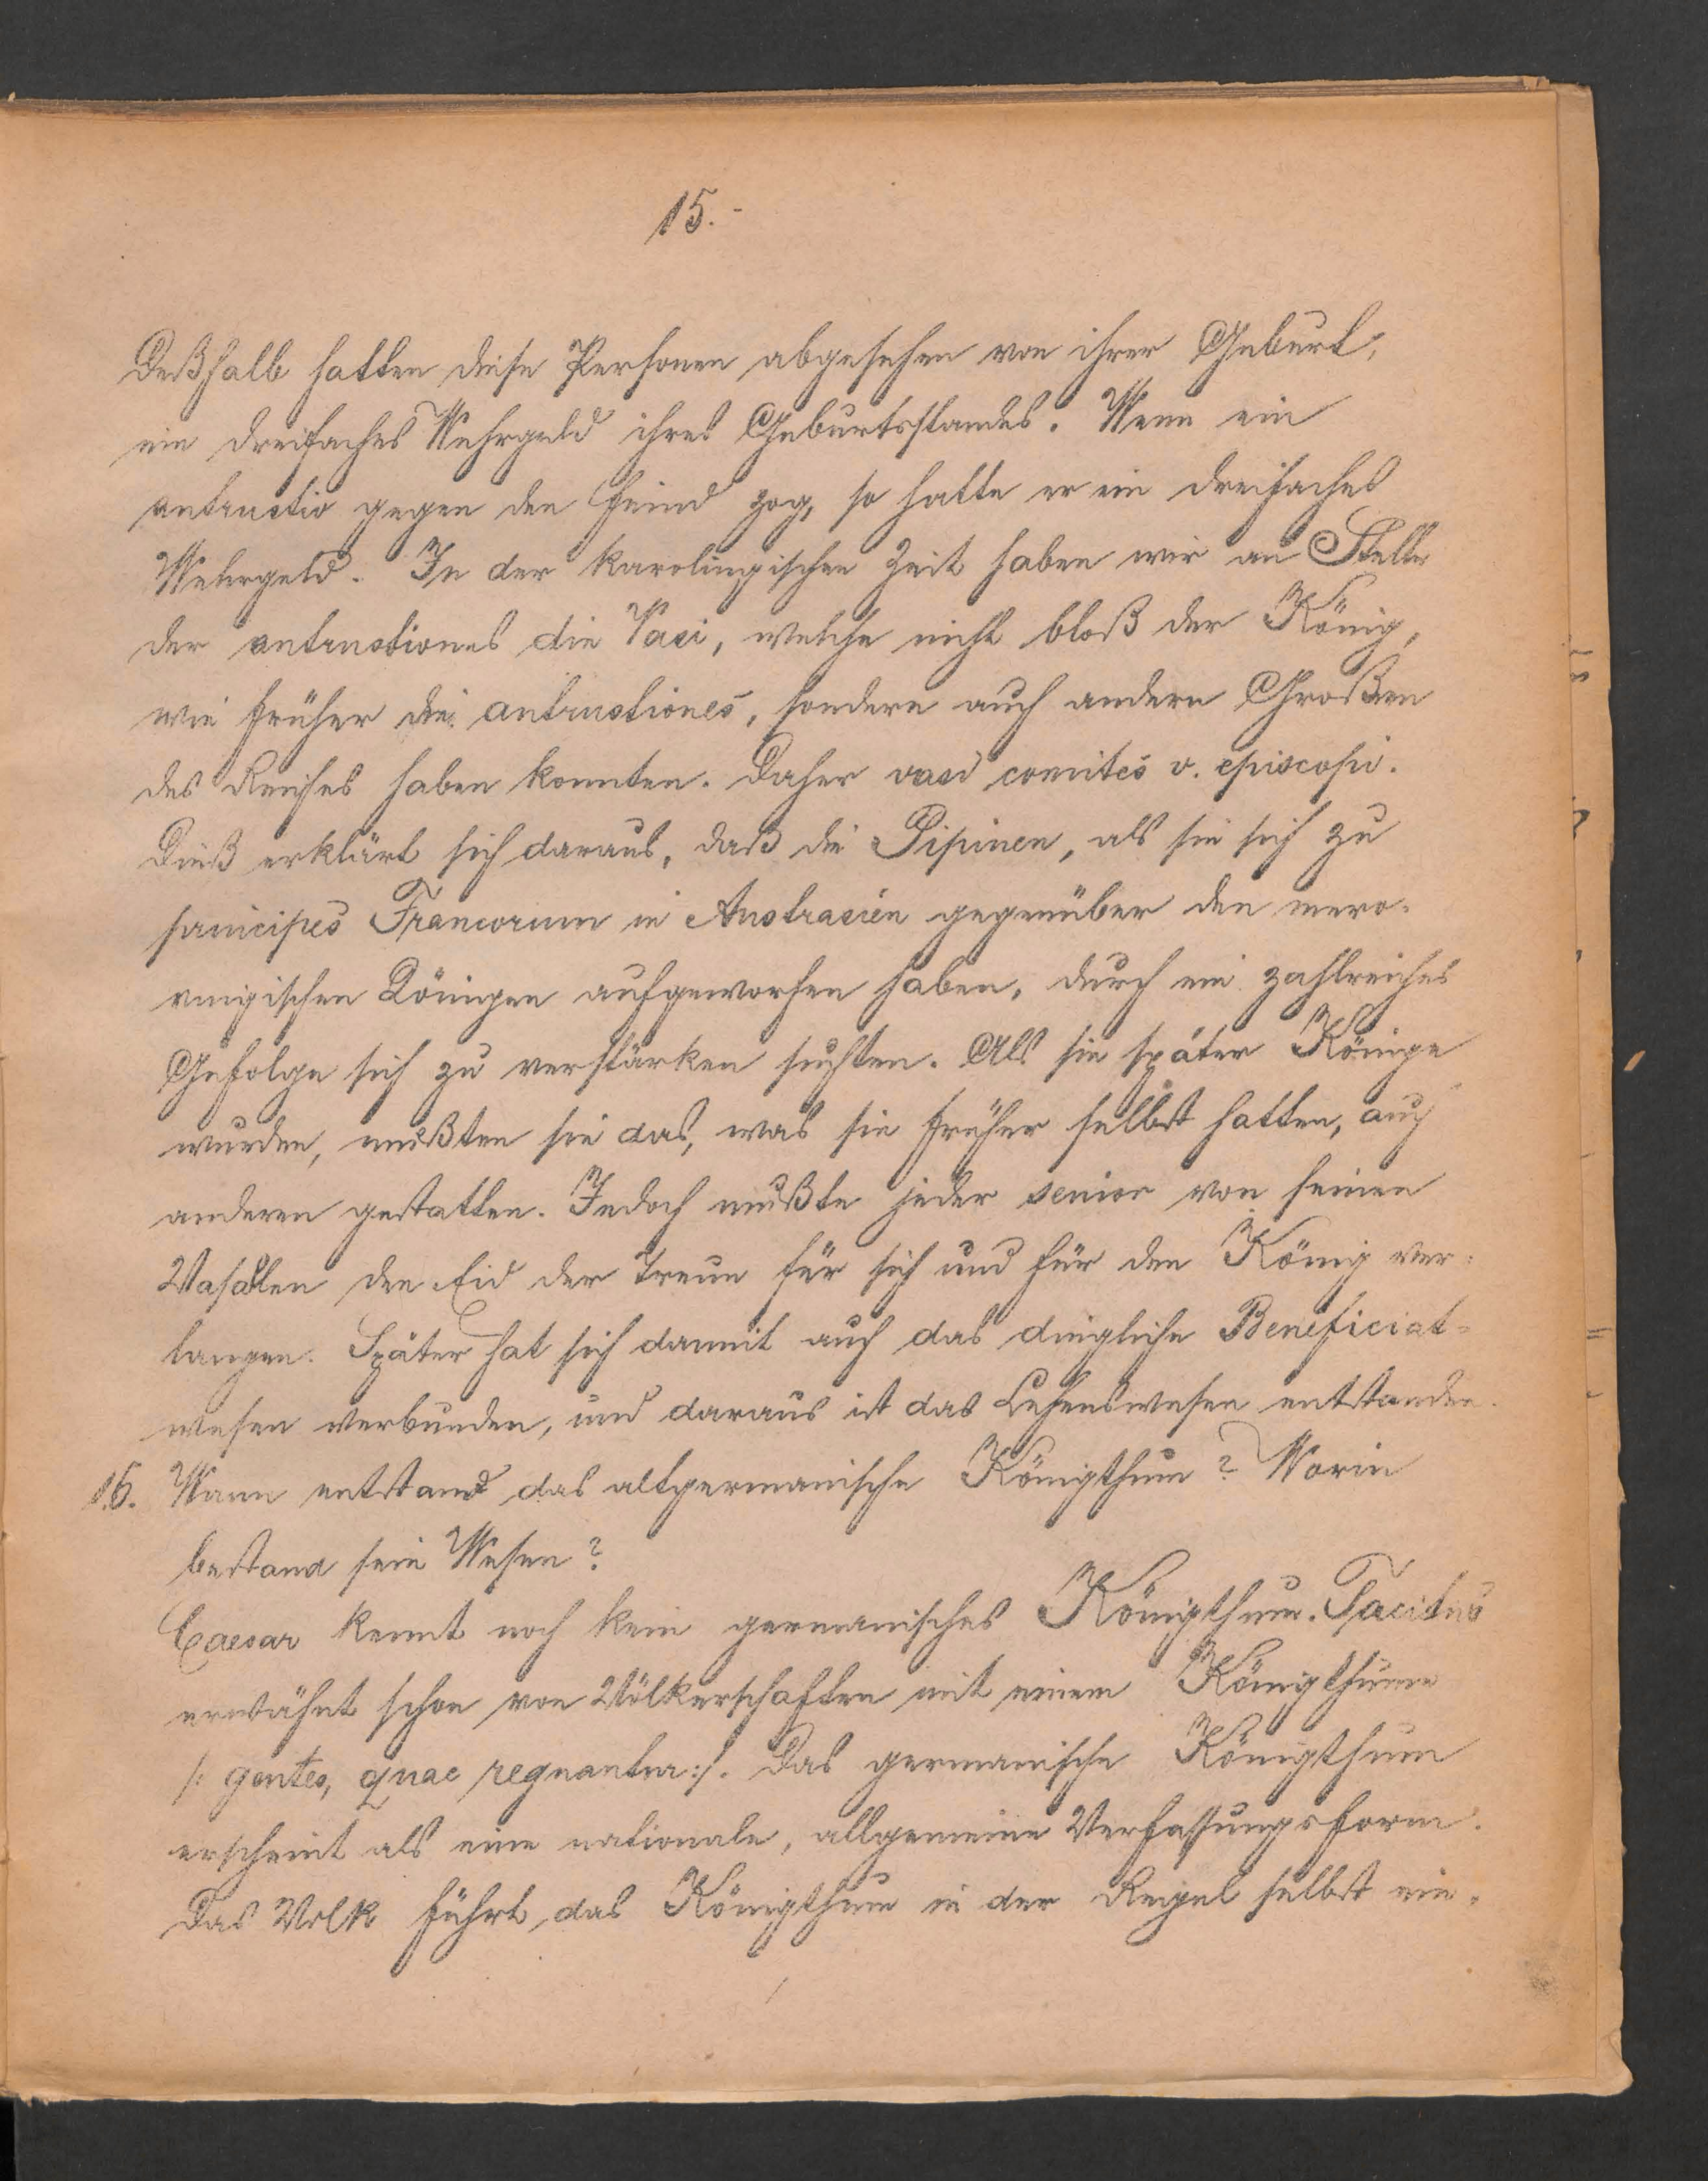 15.-
Deßhalb hatten diese Personen abgesehen von ihrer Geburt,
ein dreifaches Wehrgeld ihres Geburtsstandes. Wenn ein
antrustio gegen den Feind zog, so hatte er ein dreifaches
Wehrgeld. In der karolingischen Zeit haben wir an Stelle
der antrustiones die Vasi, welche nicht bloß der König,
wie früher die antrustiones, sondern auch andern Großen
des Reiches haben konnten. Daher vasi comites v. episcopi.
Dieß erklärt sich daraus, daß die Pipinen, als sie sich zu
principes Francorum in Austrasien gegenüber den mero-
vingischen Königen aufgeworfen haben, durch ein zahlreiches
Gefolge sich zu verstärken suchten. Als sie später Könige
wurden, mußten sie das, was sie früher selbst hatten, auch
anderen gestatten. Jedoch mußte jeder senior von seinen
Vasallen den Eid der Treue für sich und für den König ver-
langen. Später hat sich damit auch das dingliche Beneficiat-
wesen verbunden, und daraus ist das Lehenswesen entstanden.
16. Wann entstand das altgermanische Königthum? Worin
bestand sein Wesen?
Caesar kennt noch kein germanisches Königthum. Tacitus
erwähnt schon von Völkerschaften mit einem Königthume
/: gentes, quae regnantur:/. Das germanische Königthum
erscheint als eine nationale, allgemeine Verfassungsform.
Das Volk führt das Königthum in der Regel selbst ein,